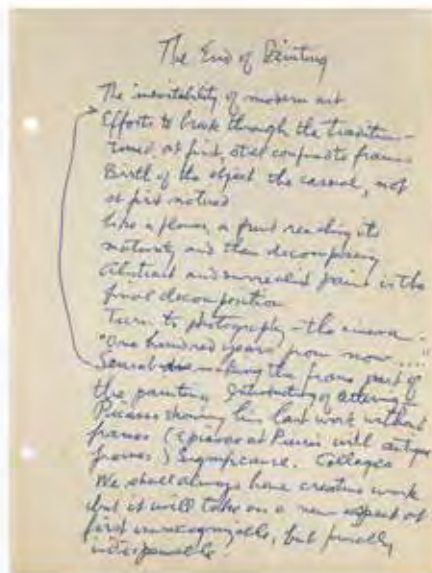 The End of Painting
The inevitability of modern art
Efforts to break through the tradition –
at first, still
Birth of the object the casual, not
at first noticed
Like a flower, a fruit reaching its
maturity and then decomposing
Abstract and surrealist is the
final decomposition
Turn to photography – the cinema –
"One hundred years from now ...."
making the frame part of
the painting
Picasso showing his last work without
frames ( at will antique
frames) Significance. Collages
We shall always have creative work
but it will take on a new aspect at
first unrecognizable, but finally
indispensable.